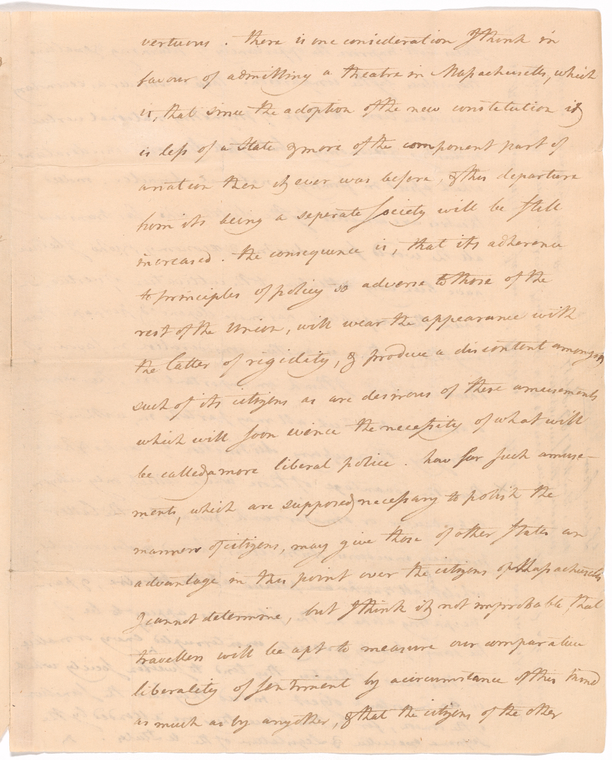 vertuous. there is one consideration I think in
favour of admitting a theatre in Massachusetts, which
is, that since the adoption of the new constitution it
is less of a State & more of the component part of
a nation then it ever was before, & this departure
from its being a seperate Society will be still
increased. the consequence is, that its adherence
to principles of policy so adverse to those of the
rest of the Union, will wear the appearance with
the latter of rigidity, & produce a discontent amongst
such of its citizens as are desirous of these amusements
which will soon evince the necessity of what will
be called a more liberal police. how far such amuse-
ments, which are supposed necessary to polish the
manners of citizens, may give those of other States an
advantage in this point over the citizens of Massachusetts
I cannot determine, but I think it not improbable that
travellers will be apt to measure our comparative
liberality of sentiment by a circumstance of this kind
as much as by any other, & that the citizens of the other